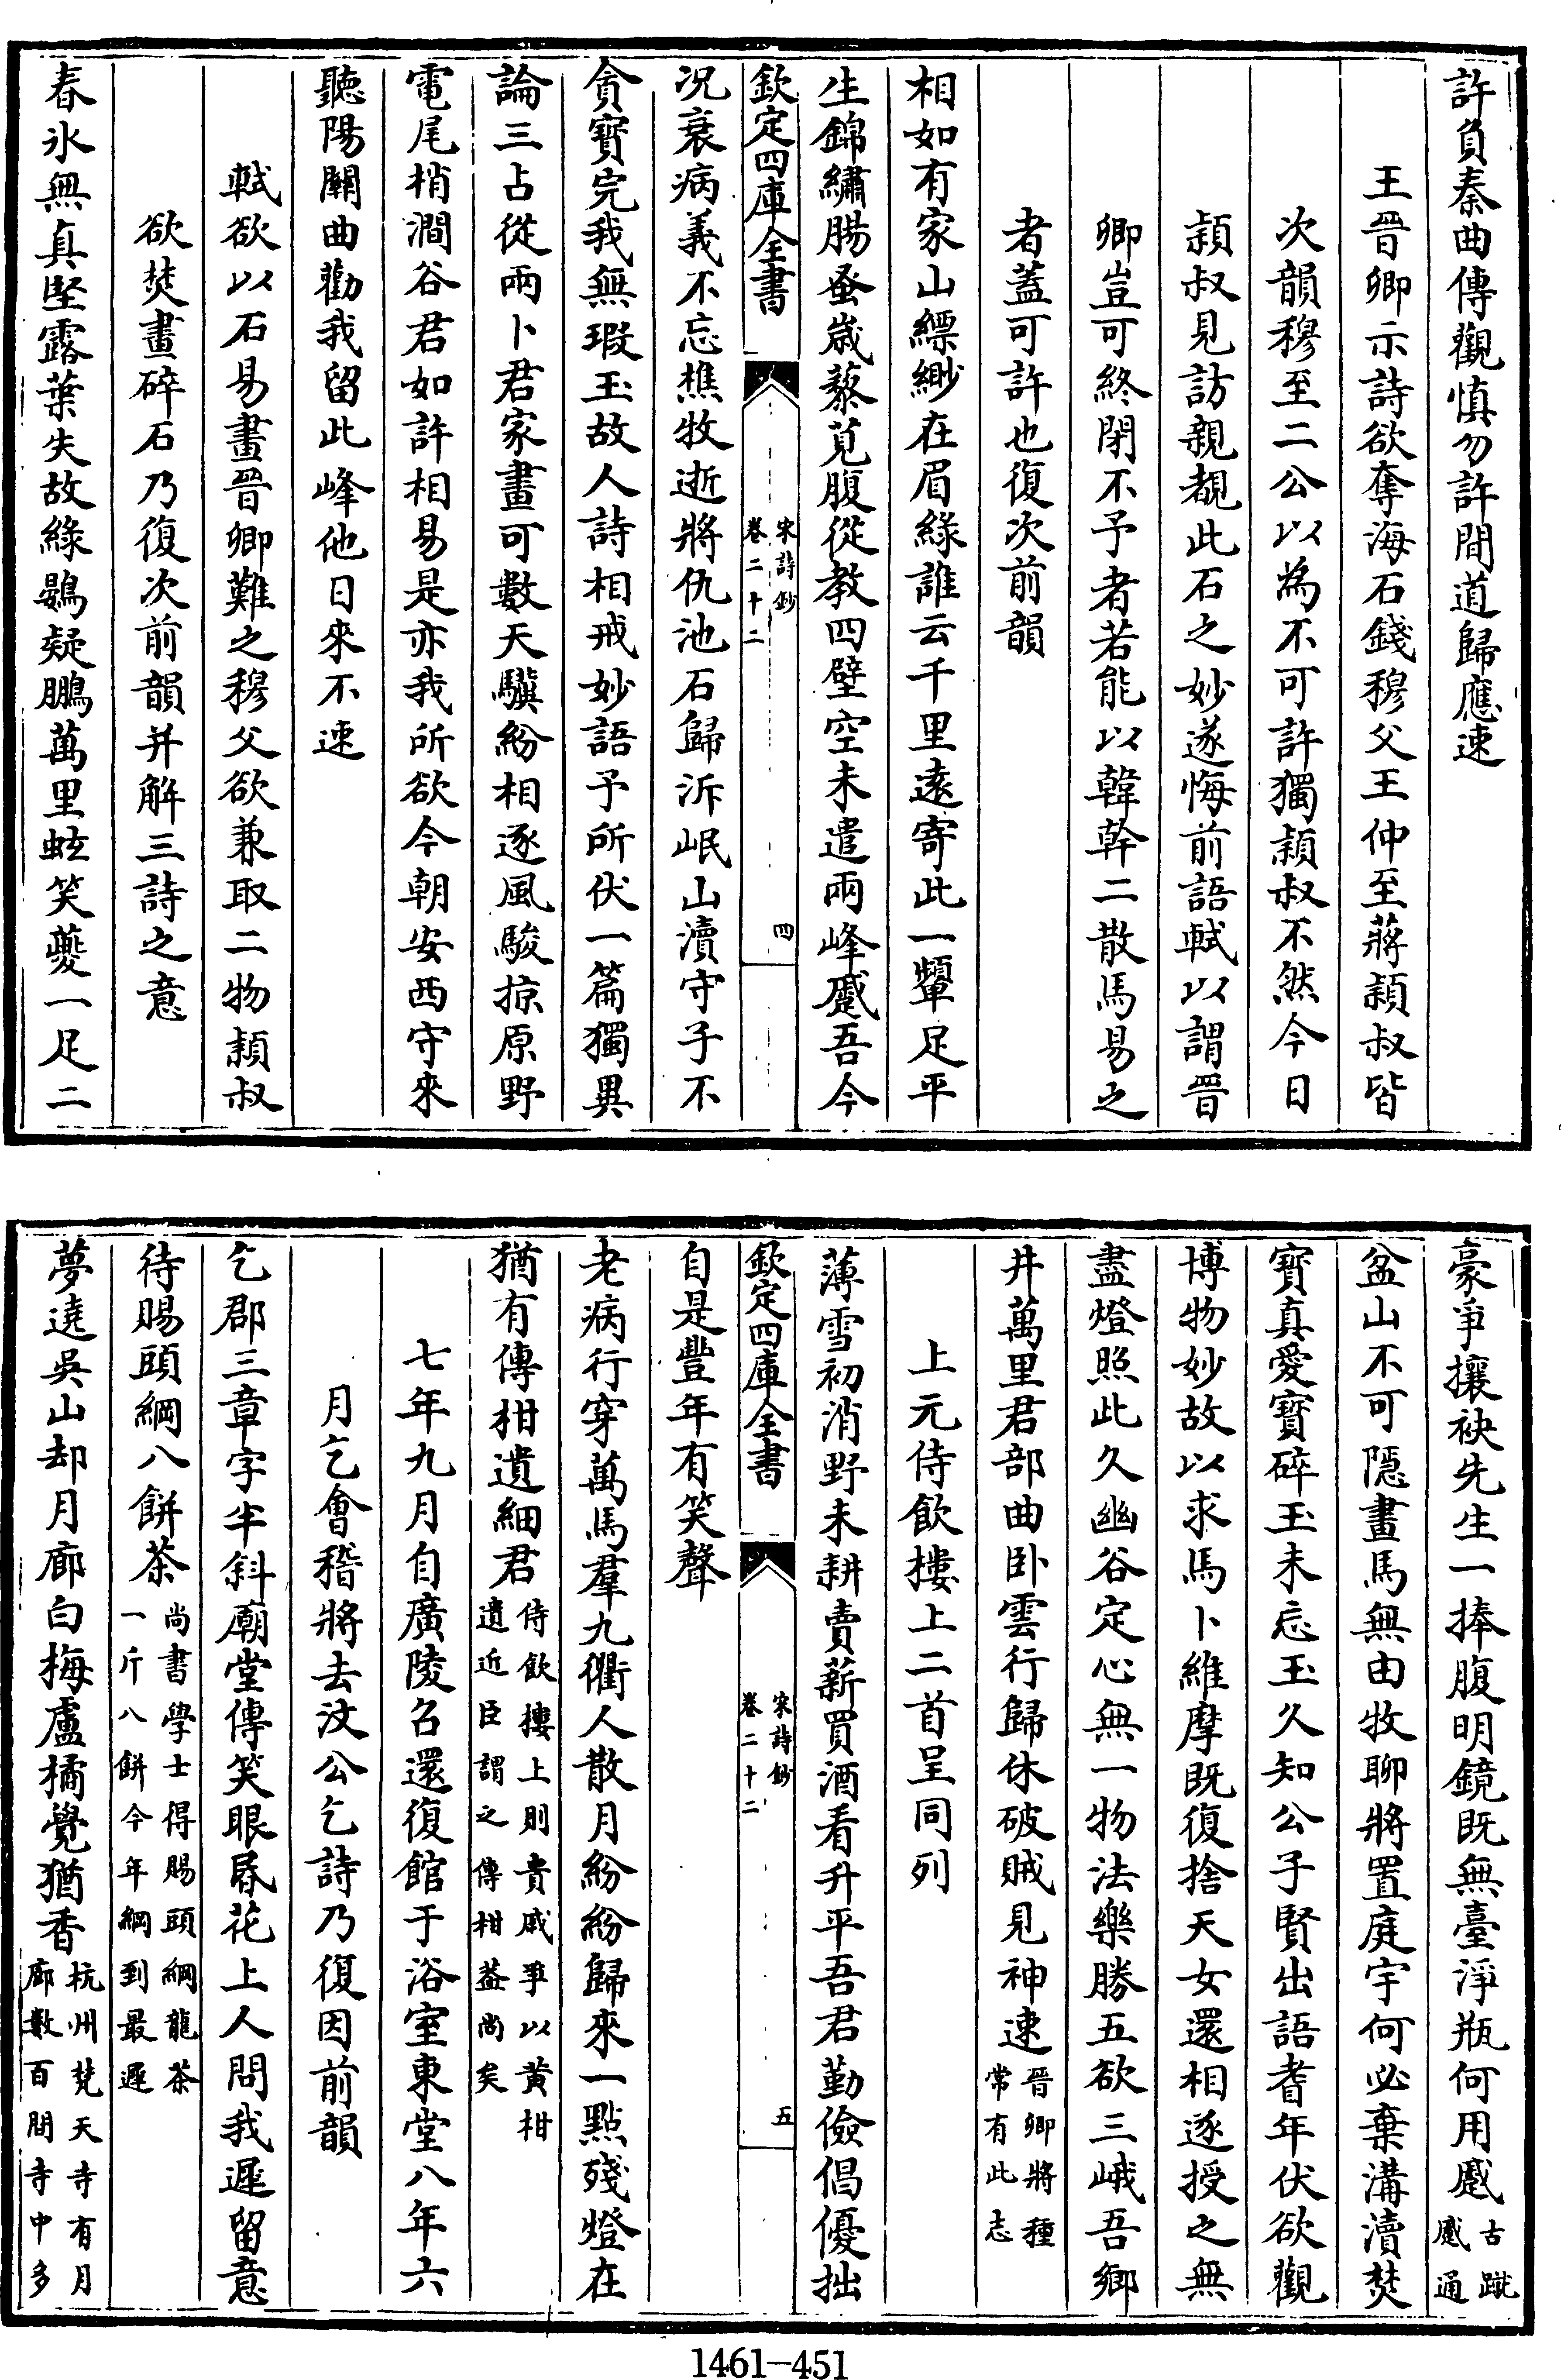 許負秦曲傳觀慎勿許間道歸應速
王晉卿示詩欲奪海石錢穆父王仲至蔣頴叔皆
次韻穆至二公以為不可許獨頴叔不然今日
頴叔見訪親覩此石之妙遂悔前語軾以謂晉
卿豈可終閉不予者若能以韓幹二散馬易之
者蓋可許也復次前韻
相如有家山縹緲在眉緑誰云千里遠寄此一顰足平
生錦繡腸蚤嵗藜莧腹從教四壁空未遣兩峰蹙吾今
欽定四庫全書
宋詩鈔
卷二十二
四
況衰病義不忘樵牧逝將仇池石歸泝岷山瀆守子不
貪寳完我無瑕玉故人詩相戒妙語予所伏一篇獨異
論三占從兩卜君家畫可數天驥紛相逐風駿掠原野
電尾梢澗谷君如許相易是亦我所欲今朝安西守來
聽陽關曲勸我留此峰他日來不速
軾欲以石易畫晉卿難之穆父欲兼取二物頴叔
欲焚畫碎石乃復次前韻并解三詩之意
春氷無真堅露葉失故緑鷃疑鵬萬里蚿笑夔一足二
豪爭攘袂先生一捧腹明鏡既無臺淨瓶何用蹙古蹴
蹙通
盆山不可隱畫馬無由牧聊將置庭宇何必棄溝瀆焚
寳真愛寳碎玉未忘玉久知公子賢出語耆年伏欲觀
博物妙故以求馬卜維摩既復捨天女還相逐授之無
盡燈照此久幽谷定心無一物法樂勝五欲三峨吾鄉
井萬里君部曲卧雲行歸休破賊見神速晉卿將種
常有此志
上元侍飲樓上二首呈同列
薄雪初消野未耕賣薪買酒看升平吾君勤儉倡優拙
欽定四庫全書
宋詩鈔
卷二十二
五
自是豐年有笑聲
老病行穿萬馬羣九衢人散月紛紛歸來一點殘燈在
猶有傳柑遺細君侍飲樓上則貴戚爭以黄柑
遺近臣謂之傳柑葢尚矣
七年九月自廣陵召還復館于浴室東堂八年六
月乞會稽將去汶公乞詩乃復因前韻
乞郡三章字半斜廟堂傳笑眼昬花上人問我遲留意
待賜頭綱八餅茶尚書學士得賜頭綱龍茶
一斤八餅今年綱到最遲
夢遶吳山却月廊白梅盧橘覺猶香杭州梵天寺有月
廊數百間寺中多
1461-451